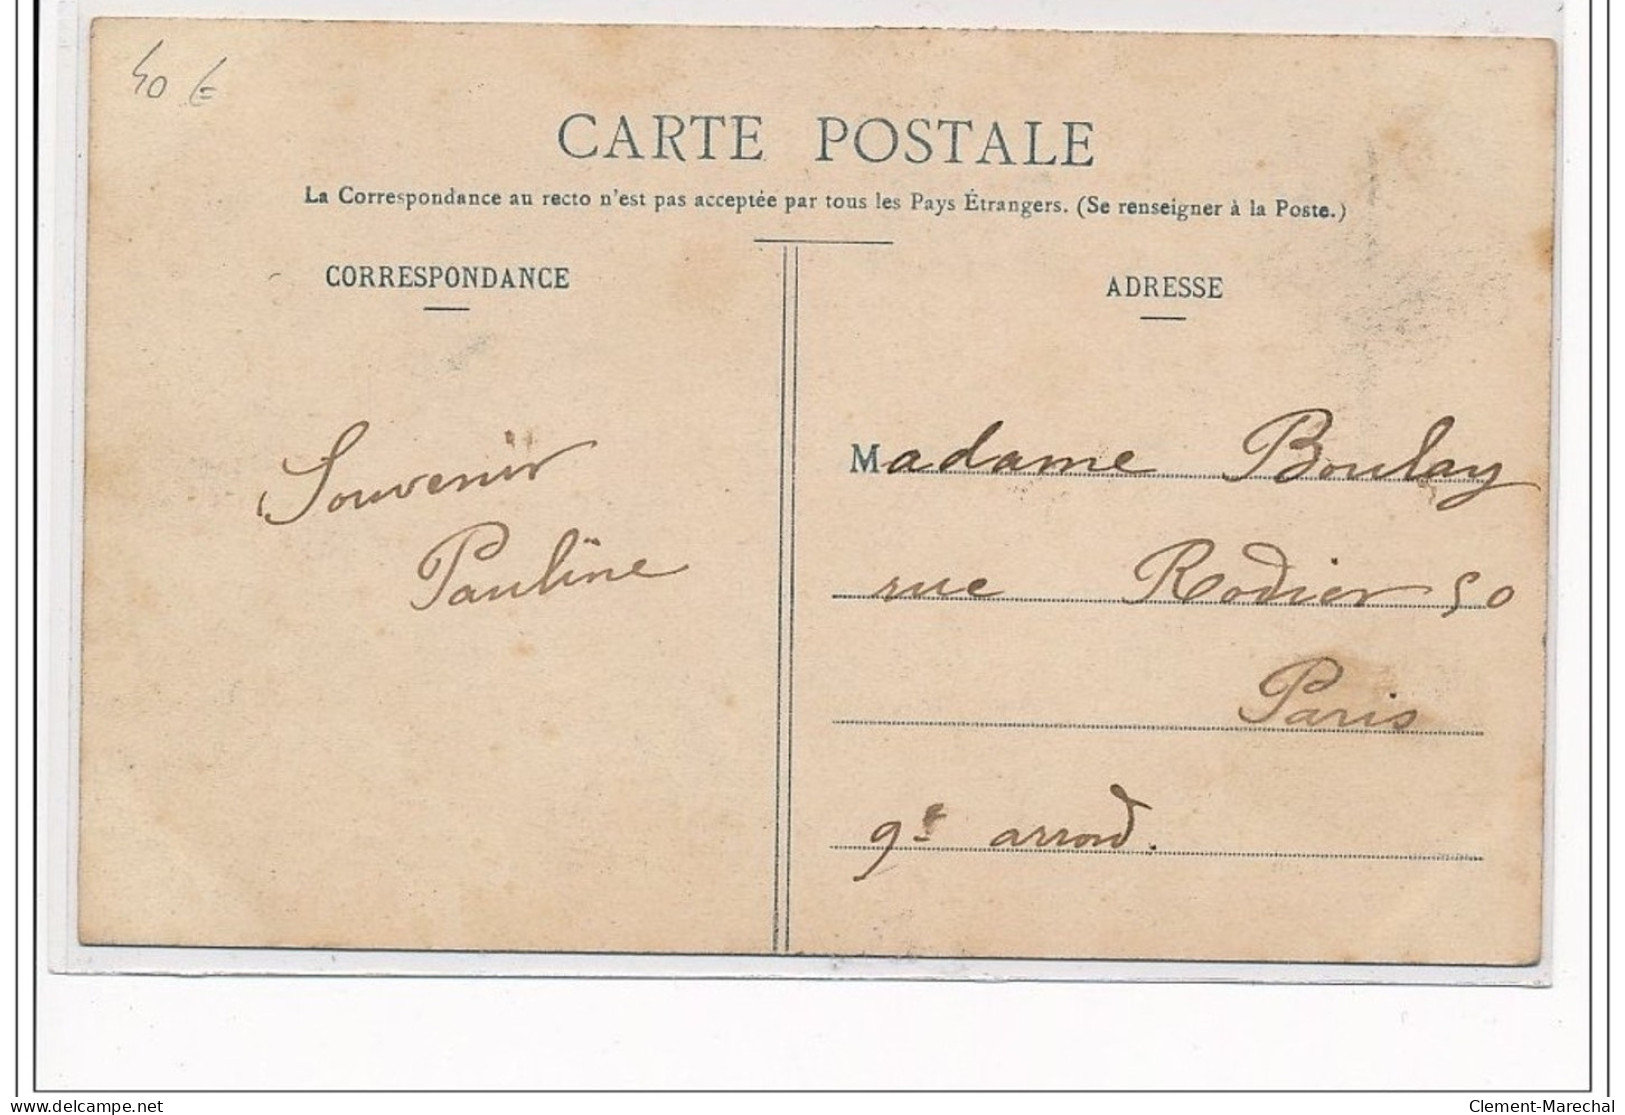 40 €
CARTE POSTALE
La Correspondance au recto n'est pas acceptée par tous les Pays Étrangers. (Se renseigner à la Poste.)
CORRESPONDANCE
Souvenir
Pauline
ADRESSE
Madame Boulay
rue Rodier 50
Paris
9e arrond.
www.delcampe.net
Clement-Marechal